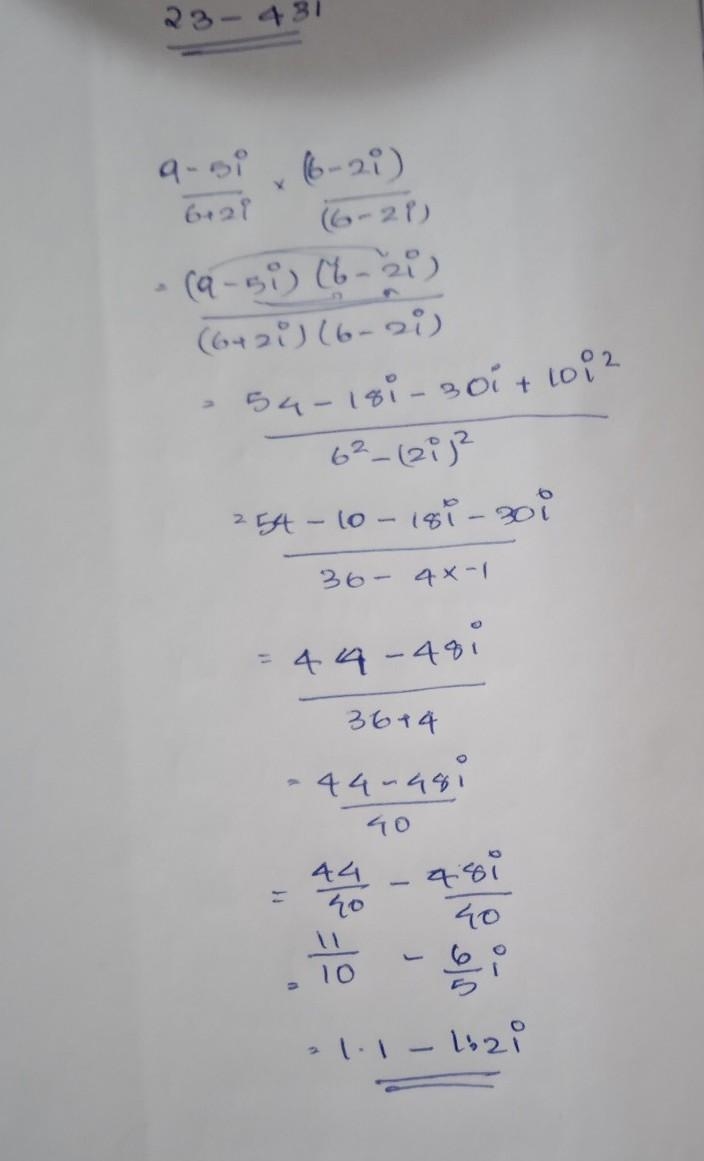 23 - 43i
9-5i/6+2i × (6-2i)/(6-2i)
= (9-5i) (6-2i)/(6+2i) (6-2i)
= 54 - 18i - 30i + 10i²/6² - (2i)²
= 54 - 10 - 18i - 30i/36 - 4x-1
= 44 - 48i/36+4
= 44 - 48i/40
= 44/40 - 48i/40
= 11/10 - 6/5 i
= 1.1 - 1.2i